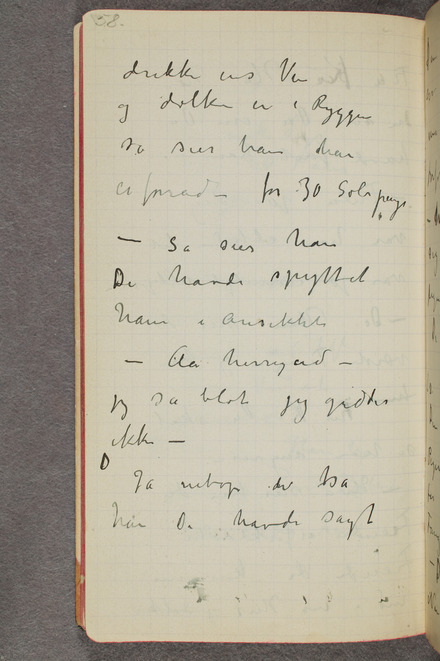 58.
drikke ens Ven
og dolken er i Ryggen
så sier han har
en forræd – for 30 Sølvpenge
– Så sier han
De havde spyttet
ham i Ansiktet
– Aa herregud –
jeg sa blot jeg gidder
ikke –
Ja netop det sa
han De havde sagt